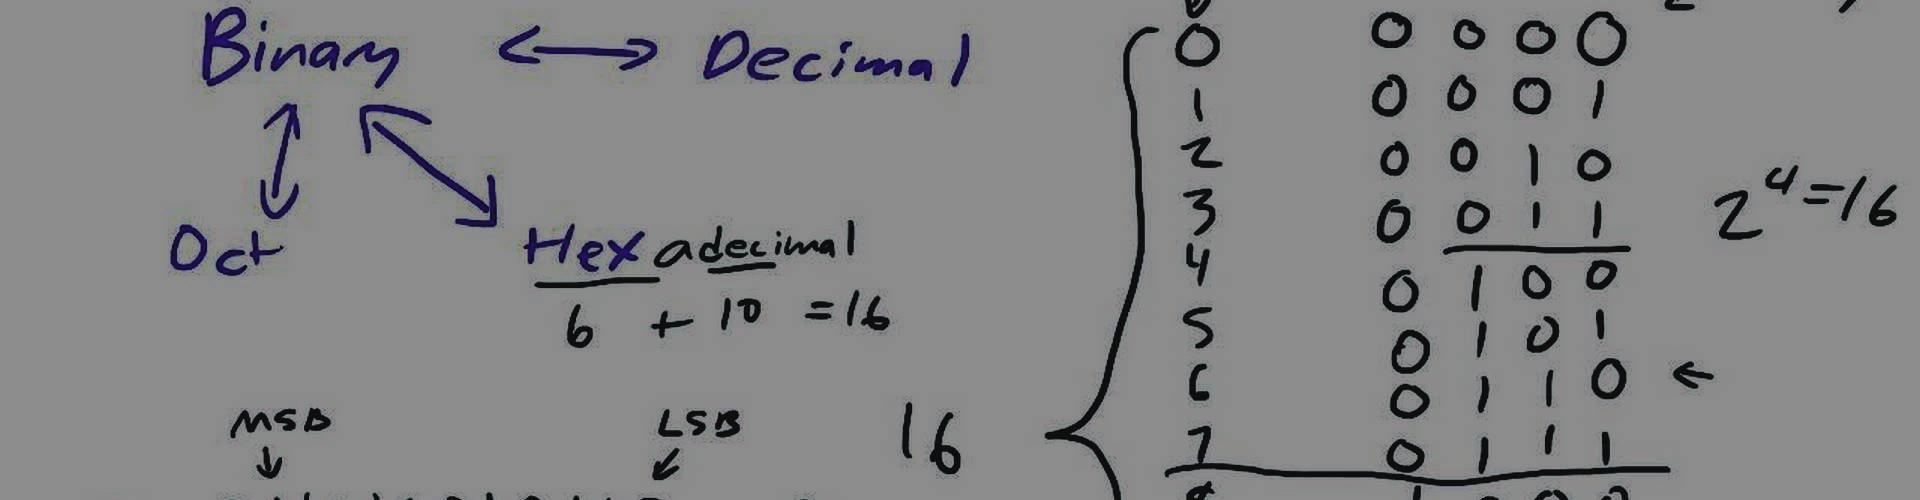 Binary ↔ Decimal
Oct
Hexadecimal
6 + 10 = 16
MSB
LSB
16
0 0 0 0 0
1 0 0 0 1
2 0 0 1 0
3 0 0 1 1
4 0 1 0 0
5 0 1 0 1
6 0 1 1 0 ←
7 0 1 1 1
2^4=16